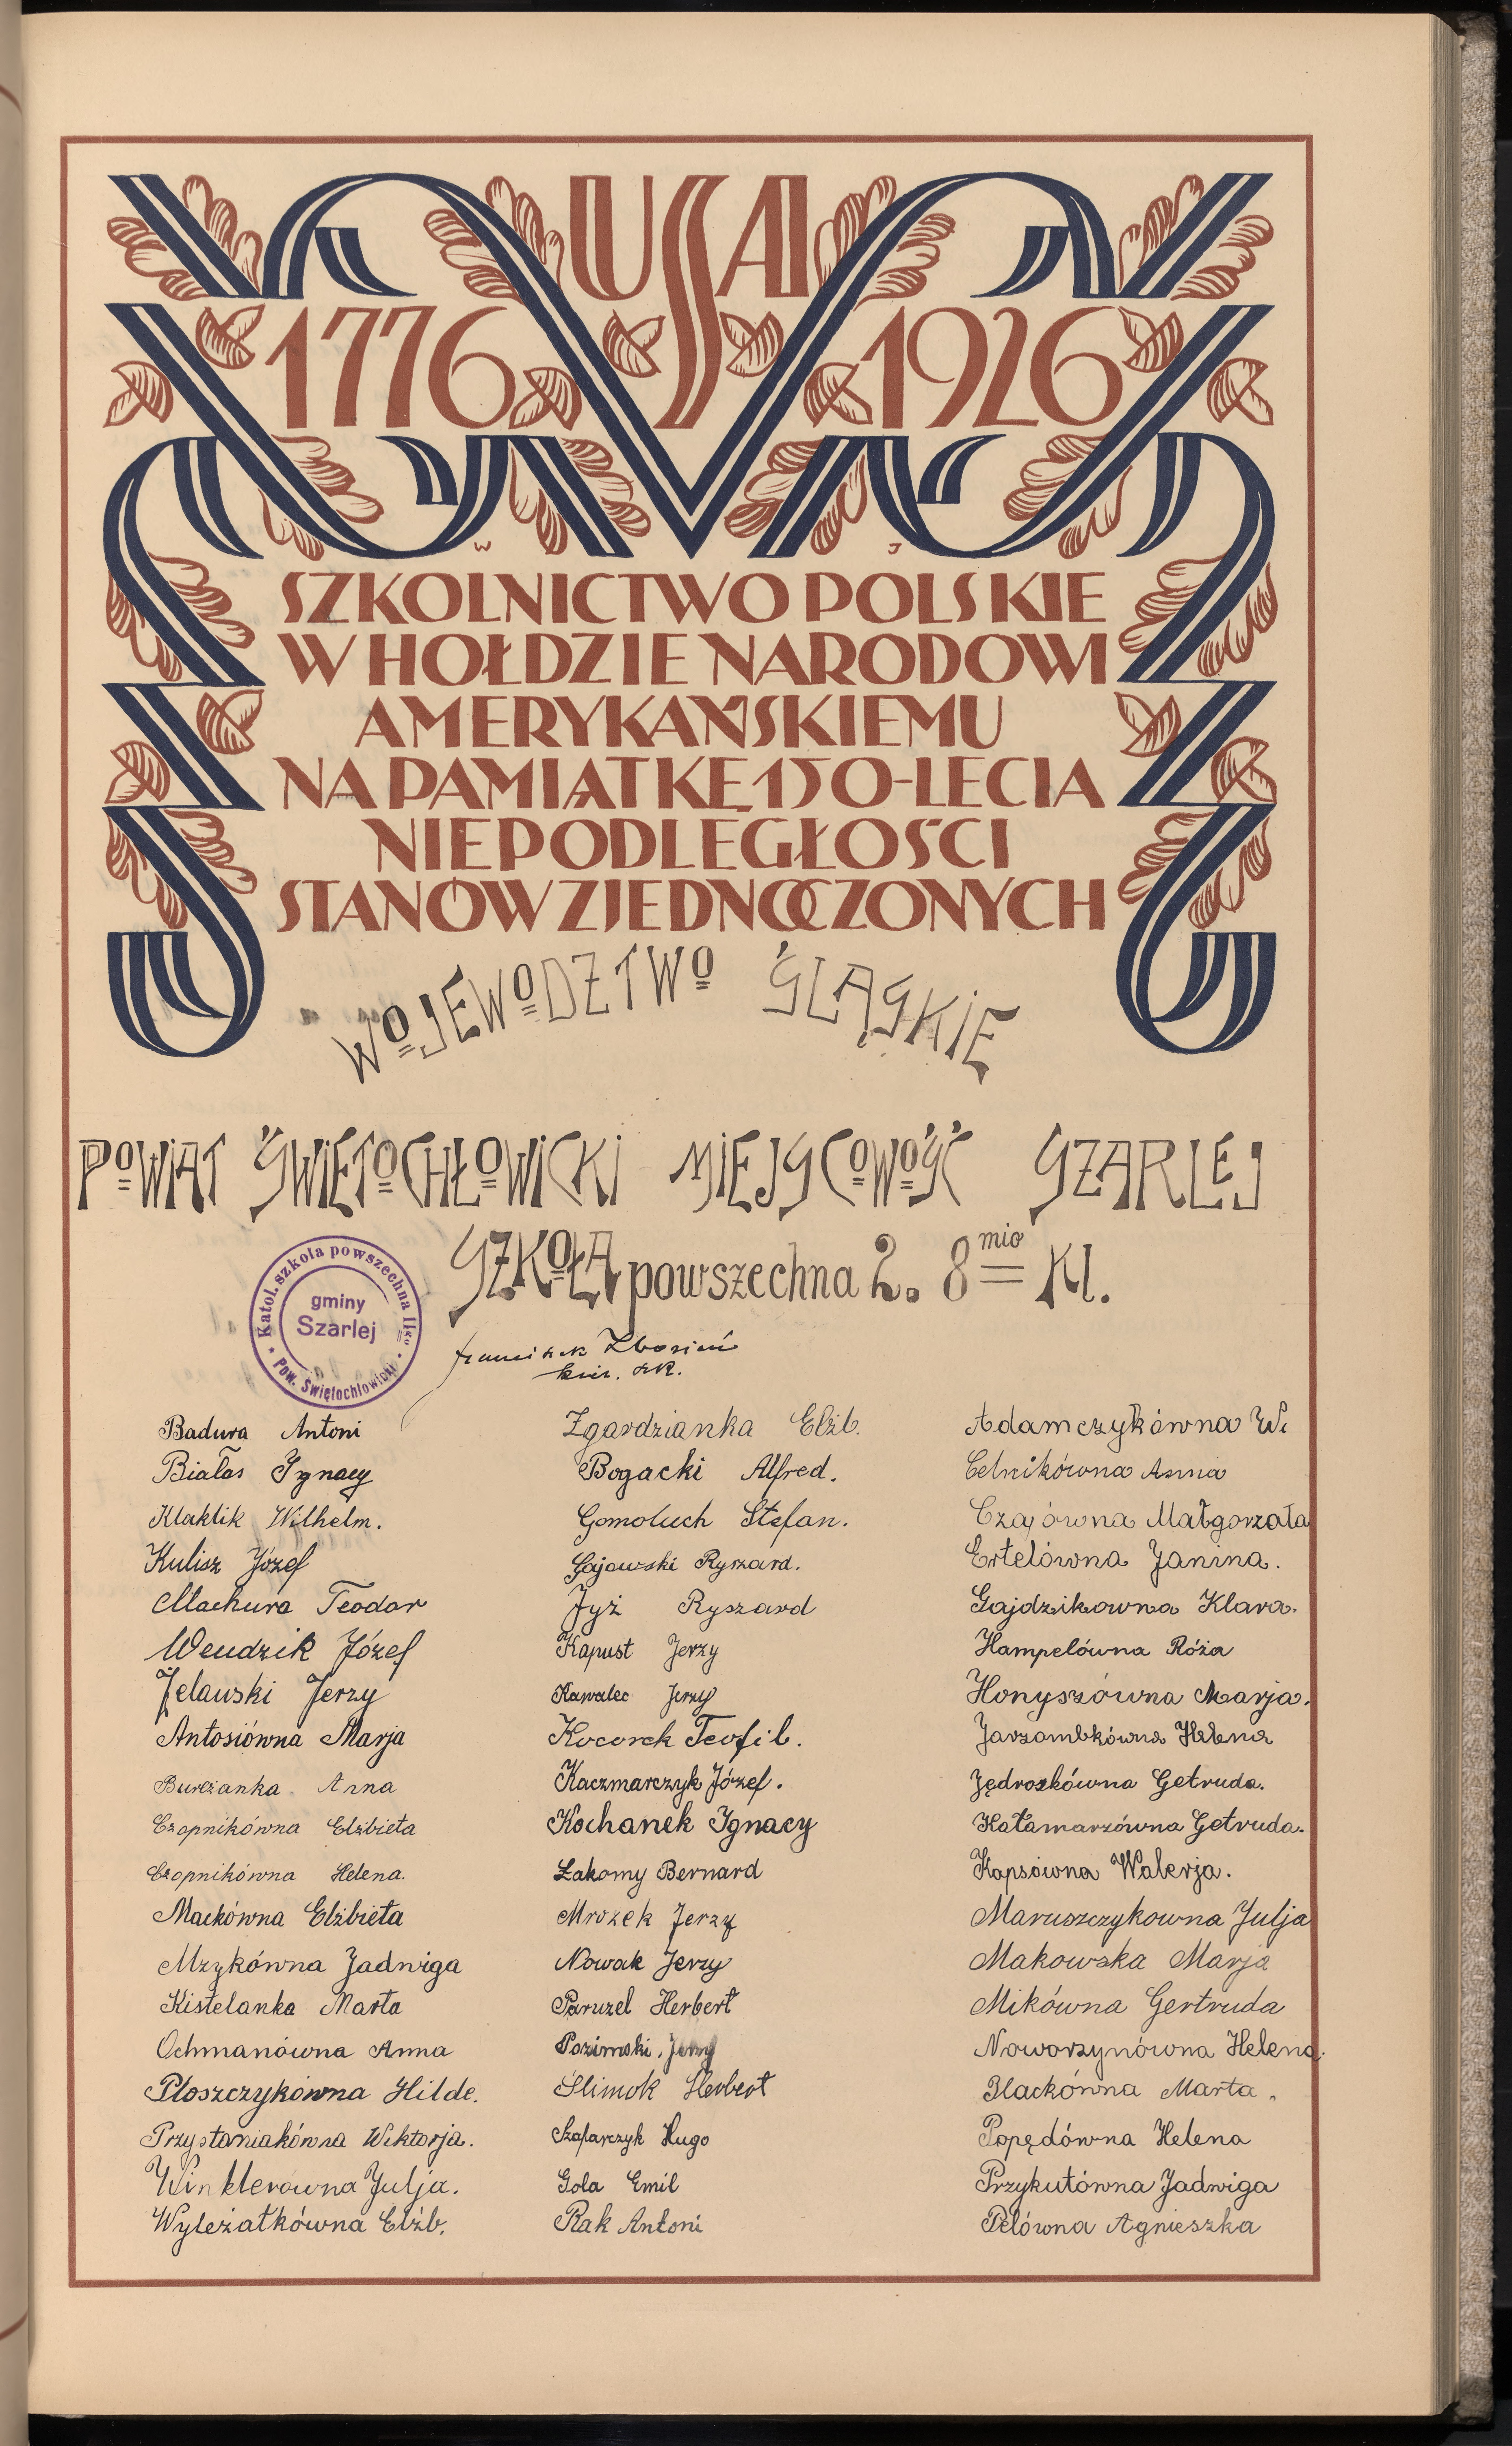 USA
1776 1926
W J
SZKOLNICTWO POLSKIE
W HOŁDZIE NARODOWI
AMERYKAŃSKIEMU
NA PAMIĄTKĘ 150-LECIA
NIEPODLEGŁOŚCI
STANÓW ZJEDNOCZONYCH
WOJEWODZTWO ŚLĄSKIE
POWIAT ŚWIĘTOCHŁOWICKI MIEJSCOWOŚĆ SZARLEJ
SZKOŁA powszechna 2. 8mio Kl.
Katol. szkoła powszechna IIga
gminy
Szarlej
Pow. Świętochłowicki
Franciszek
kier. szk.
Badura Antoni
Białas Ignacy
Klaklik Wilhelm.
Kulisz Józef
Machura Teodor
Wendzik Józef
Jelawski Jerzy
Antosiówna Marja
Burczanka Anna
Czopnikówna Elżbieta
Czopnikówna Helena.
Mackówna Elżbieta
Mzykówna Jadwiga
Kistelanka Marta
Ochmanówna Anna
Ploszczykówna Hilde.
Przystaniakówna Wiktorja.
Winklerowna Julja.
Wyleżatkówna Elżb.
Zgardzianka Elżb.
Bogacki Alfred.
Gomoluch Stefan.
Gajowski Ryszard.
Jyż Ryszard
Kapust Jerzy
Kawalec Jerzy
Kocorek Teofil.
Kaczmarczyk Józef.
Kochanek Ignacy
Łakomy Bernard
Mrozek Jerzy
Nowak Jerzy
Paruzel Herbert
Pozimski Jerzy
Slimok Herbert
Szafarczyk Hugo
Gola Emil
Rak Antoni
Adamczykówna Wi
Celnikówna Anna
Czajówna Małgorzata
Ertelówna Janina.
Gajdzikowna Klara.
Hampelówna Róża
Honyszówna Marja.
Jarzombkówna Helena
Jędroskówna Getruda.
Katamarzówna Getruda.
Kapsówna Walerja.
Maruszczykowna Julja
Makowska Marja
Mikówna Gertruda
Noworzynówna Helena.
Plackówna Marta.
Popędówna Helena
Przykutówna Jadwiga
Pelówna Agnieszka